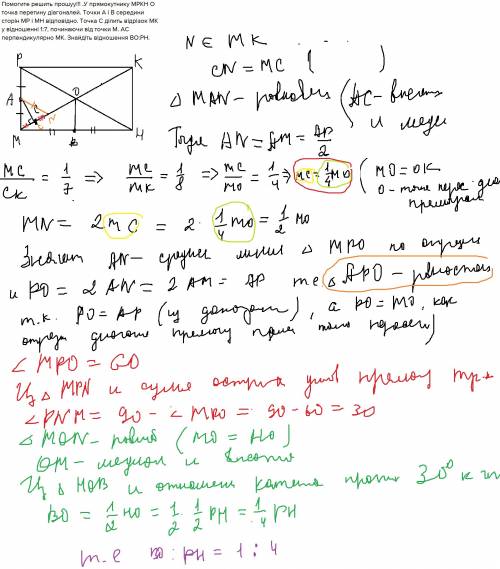 Помогите решить прошууу!!! .У прямокутнику МРКН О
точка перетину діагоналей. Точки А і В середини
сторін МР і МН відповідно. Точка С ділить відрізок МК
у відношенні 1:7, починаючи від точки М. АС
перпендикулярно МК. Знайдіть відношення ВО:РН.
N ∈ MK . . . .
CN = MC (
P K
A O
C N
M B H
△ MAN – равнобед (AC – высота
и меди
Тогда AN = AM = AP/2
MC/CK = 1/7 => MC/MK = 1/8 => MC/MO = 1/4 => MC = 1/4 MO (MO = OK
O – точка перес диа
MN = 2 MC = 2 · 1/4 MO = 1/2 MO
Значит AN – средняя линия △ MPO по опред
и PO = 2 AN = 2 AM = MP т.е △ APO – равностор
т.к. PO = AP (из доказан), а PO = MO, как
∠ MPO = 60
Из △ MPN и сумме острых углов прямоуг тр-ка
∠ PNM = 90 - ∠ MPO = 90 - 60 = 30
△ MON – равноб (MO = HO)
OM – медиан и высота
Из △ HOB и отношения катета против 30° к
BO = 1/2 HO = 1/2 · 1/2 PH = 1/4 PH
т.е BO : PH = 1 : 4